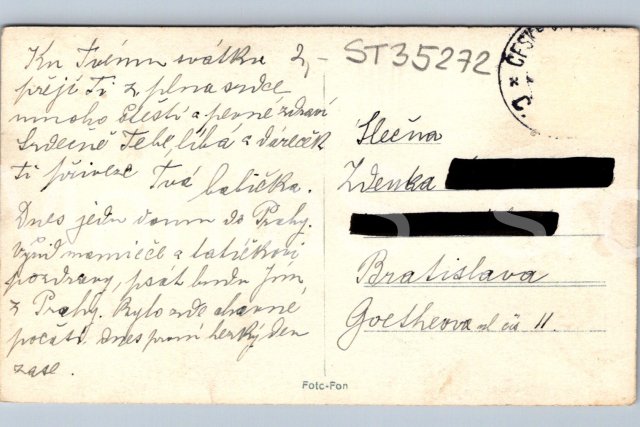 Ku Tvému svátku 2,-
přeji Ti z plna srdce
mnoho štěstí a pevné zdraví
Srdečně Tebe líbá a dáreček
Ti přiveze Tvá babička.
Dnes jedu domu do Prahy.
Vyřiď mamičce a tatíčkovi
pozdravy, psát budu Jim,
z Prahy. Bylo zde
počasí. Dnes první hezký den
zase.
ST35272
Slečna
Zdenka
Bratislava
Goetheova ul čís 11.
Foto-Fon